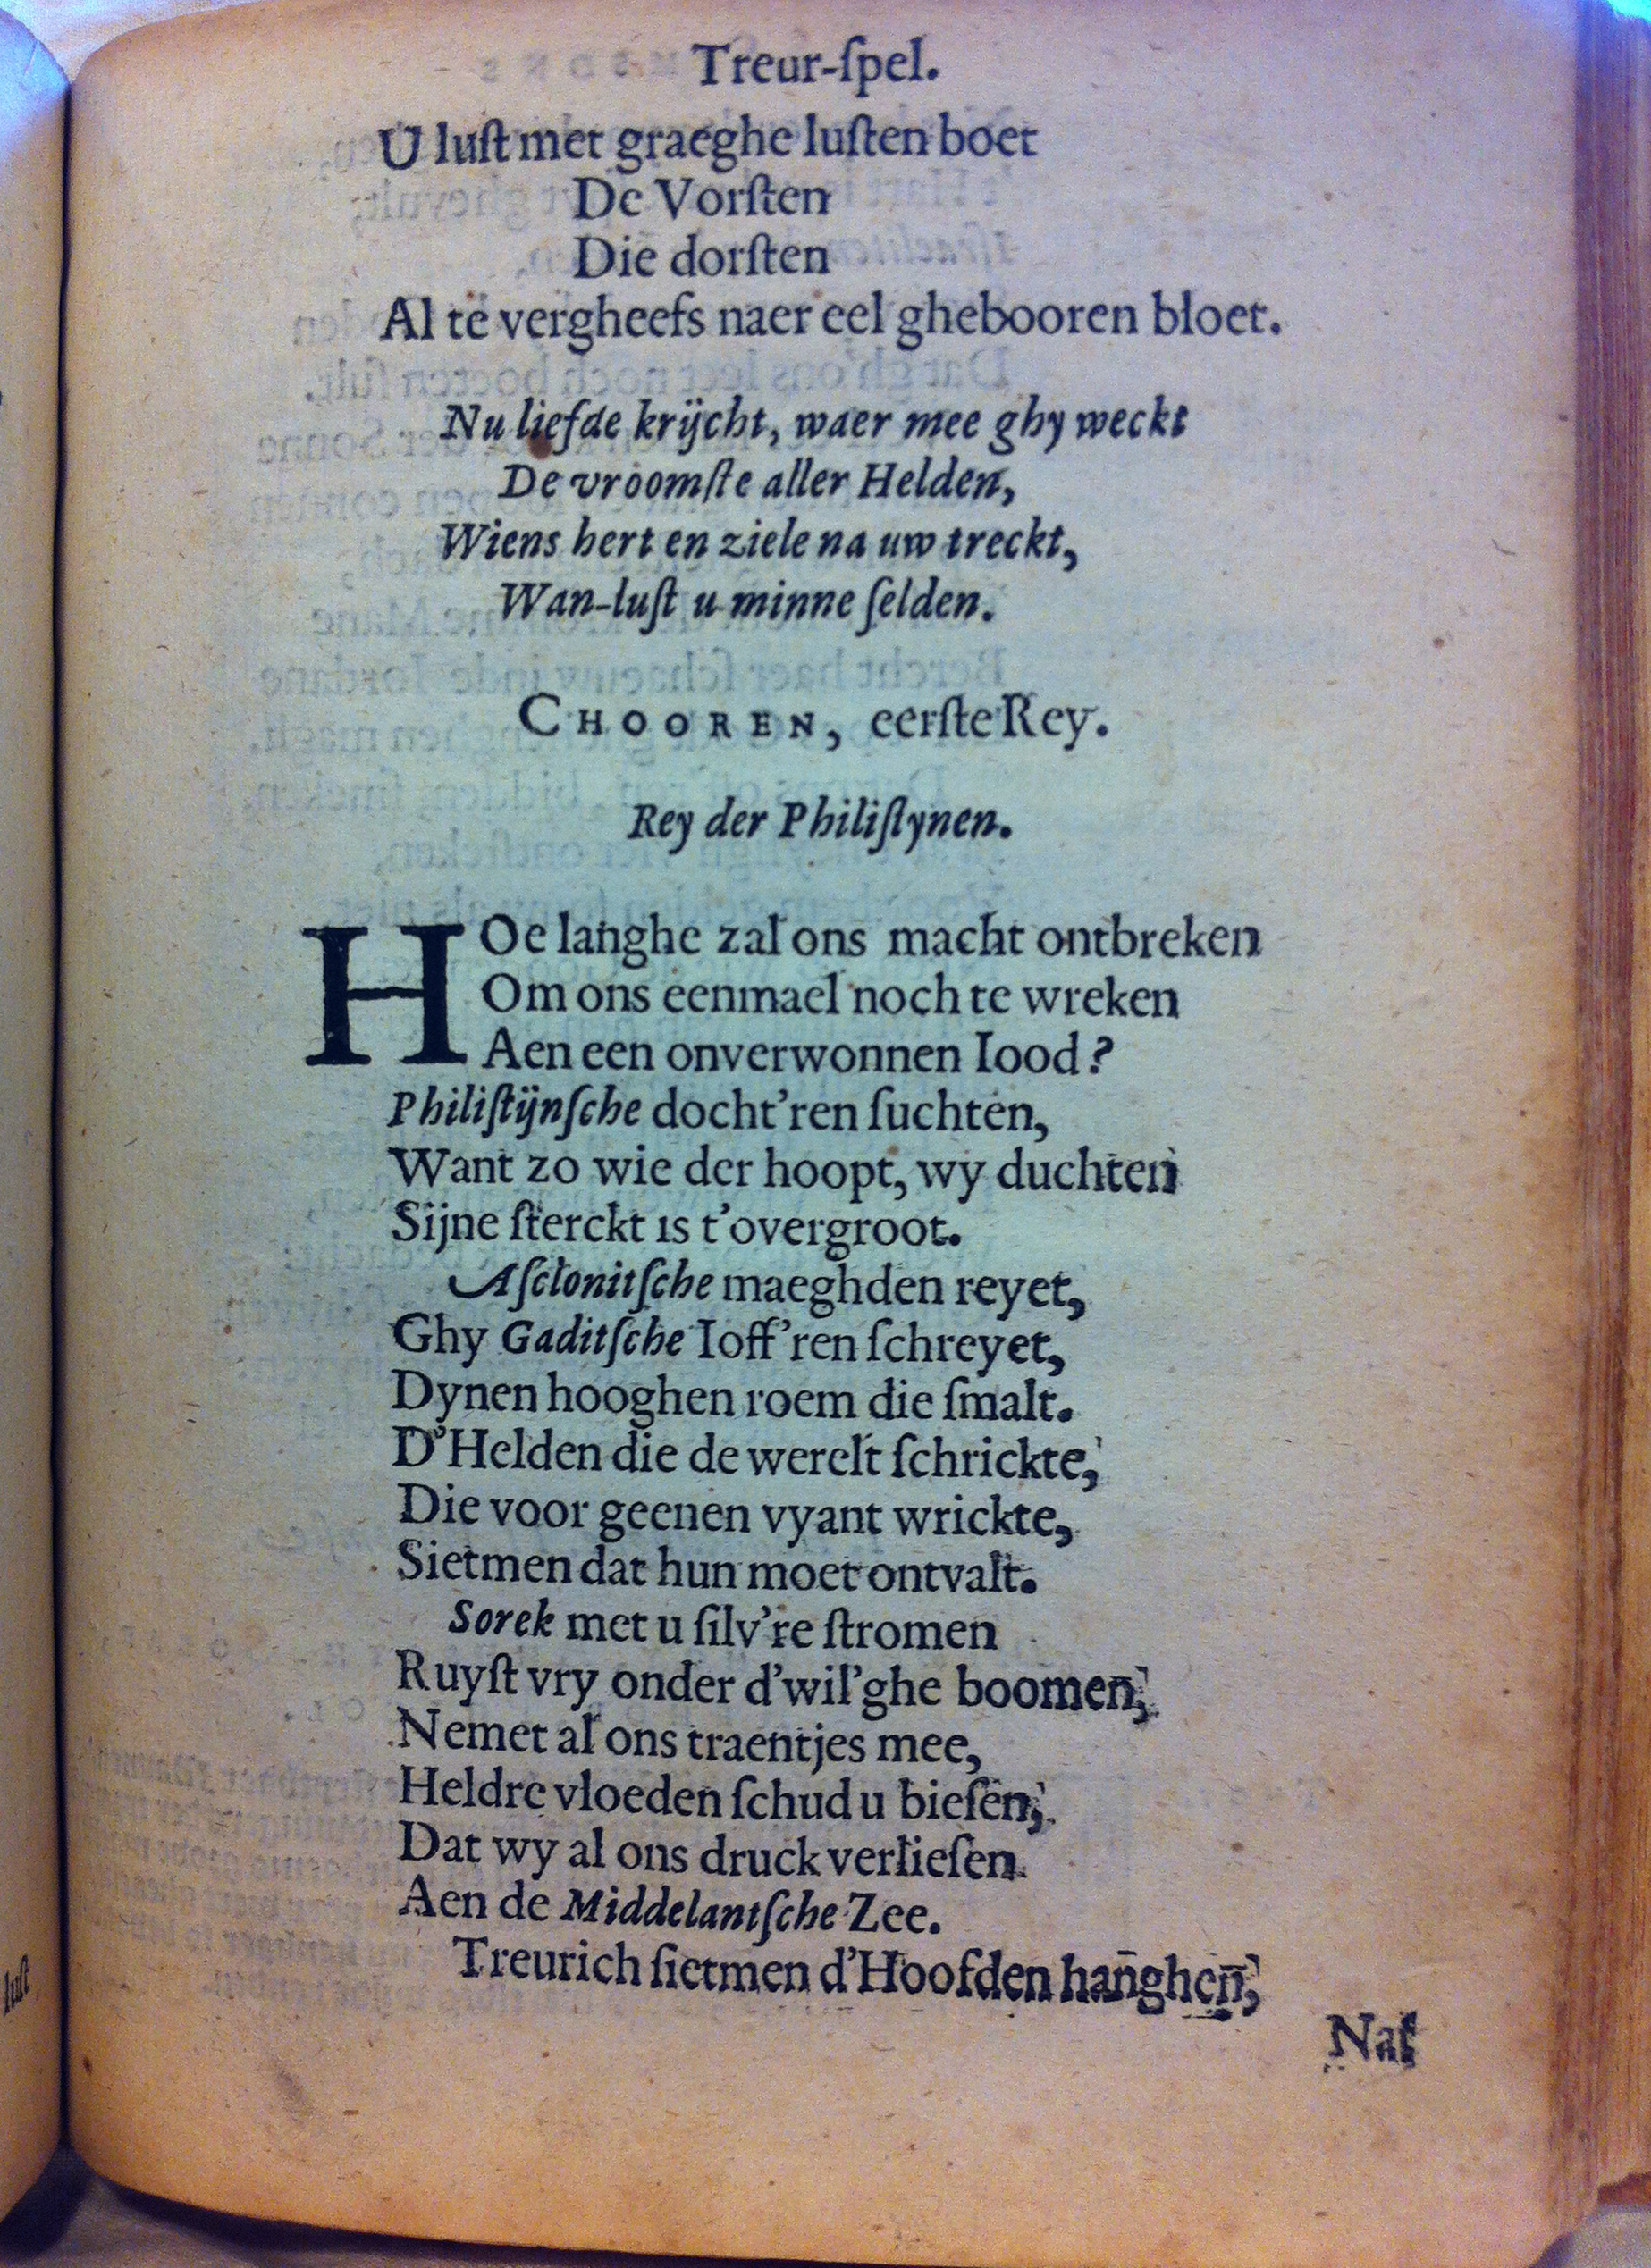 Treur-ſpel.
U luſt met graeghe luſten boet
De Vorſten
Die dorſten
Al te vergheefs naer eel ghebooren bloet.
Nu liefde krijcht, waer mee ghy weckt
De vroomſte aller Helden,
Wiens hert en ziele na uw treckt,
Wan-luſt u minne ſelden.
CHOOREN, eerſte Rey.
Rey der Philiſtynen.
HOe langhe zal ons macht ontbreken
Om ons eenmael noch te wreken
Aen een onverwonnen Iood?
Philiſtijnſche docht'ren ſuchten,
Want zo wie der hoopt, wy duchten
Sijne ſterckt is t'overgroot.
Aſclonitſche maeghden reyet,
Ghy Gaditſche Ioff'ren ſchreyet,
Dynen hooghen roem die ſmalt.
D'Helden die de werelt ſchrickte,
Die voor geenen vyant wrickte,
Sietmen dat hun moet ontvalt.
Sorek met u ſilv're ſtromen
Ruyſt vry onder d'wil'ghe boomen,
Nemet al ons traentjes mee,
Heldre vloeden ſchud u bieſen,
Dat wy al ons druck verlieſen
Aen de Middelantſche Zee.
Treurich ſietmen d'Hoofden hanghen,
luſt